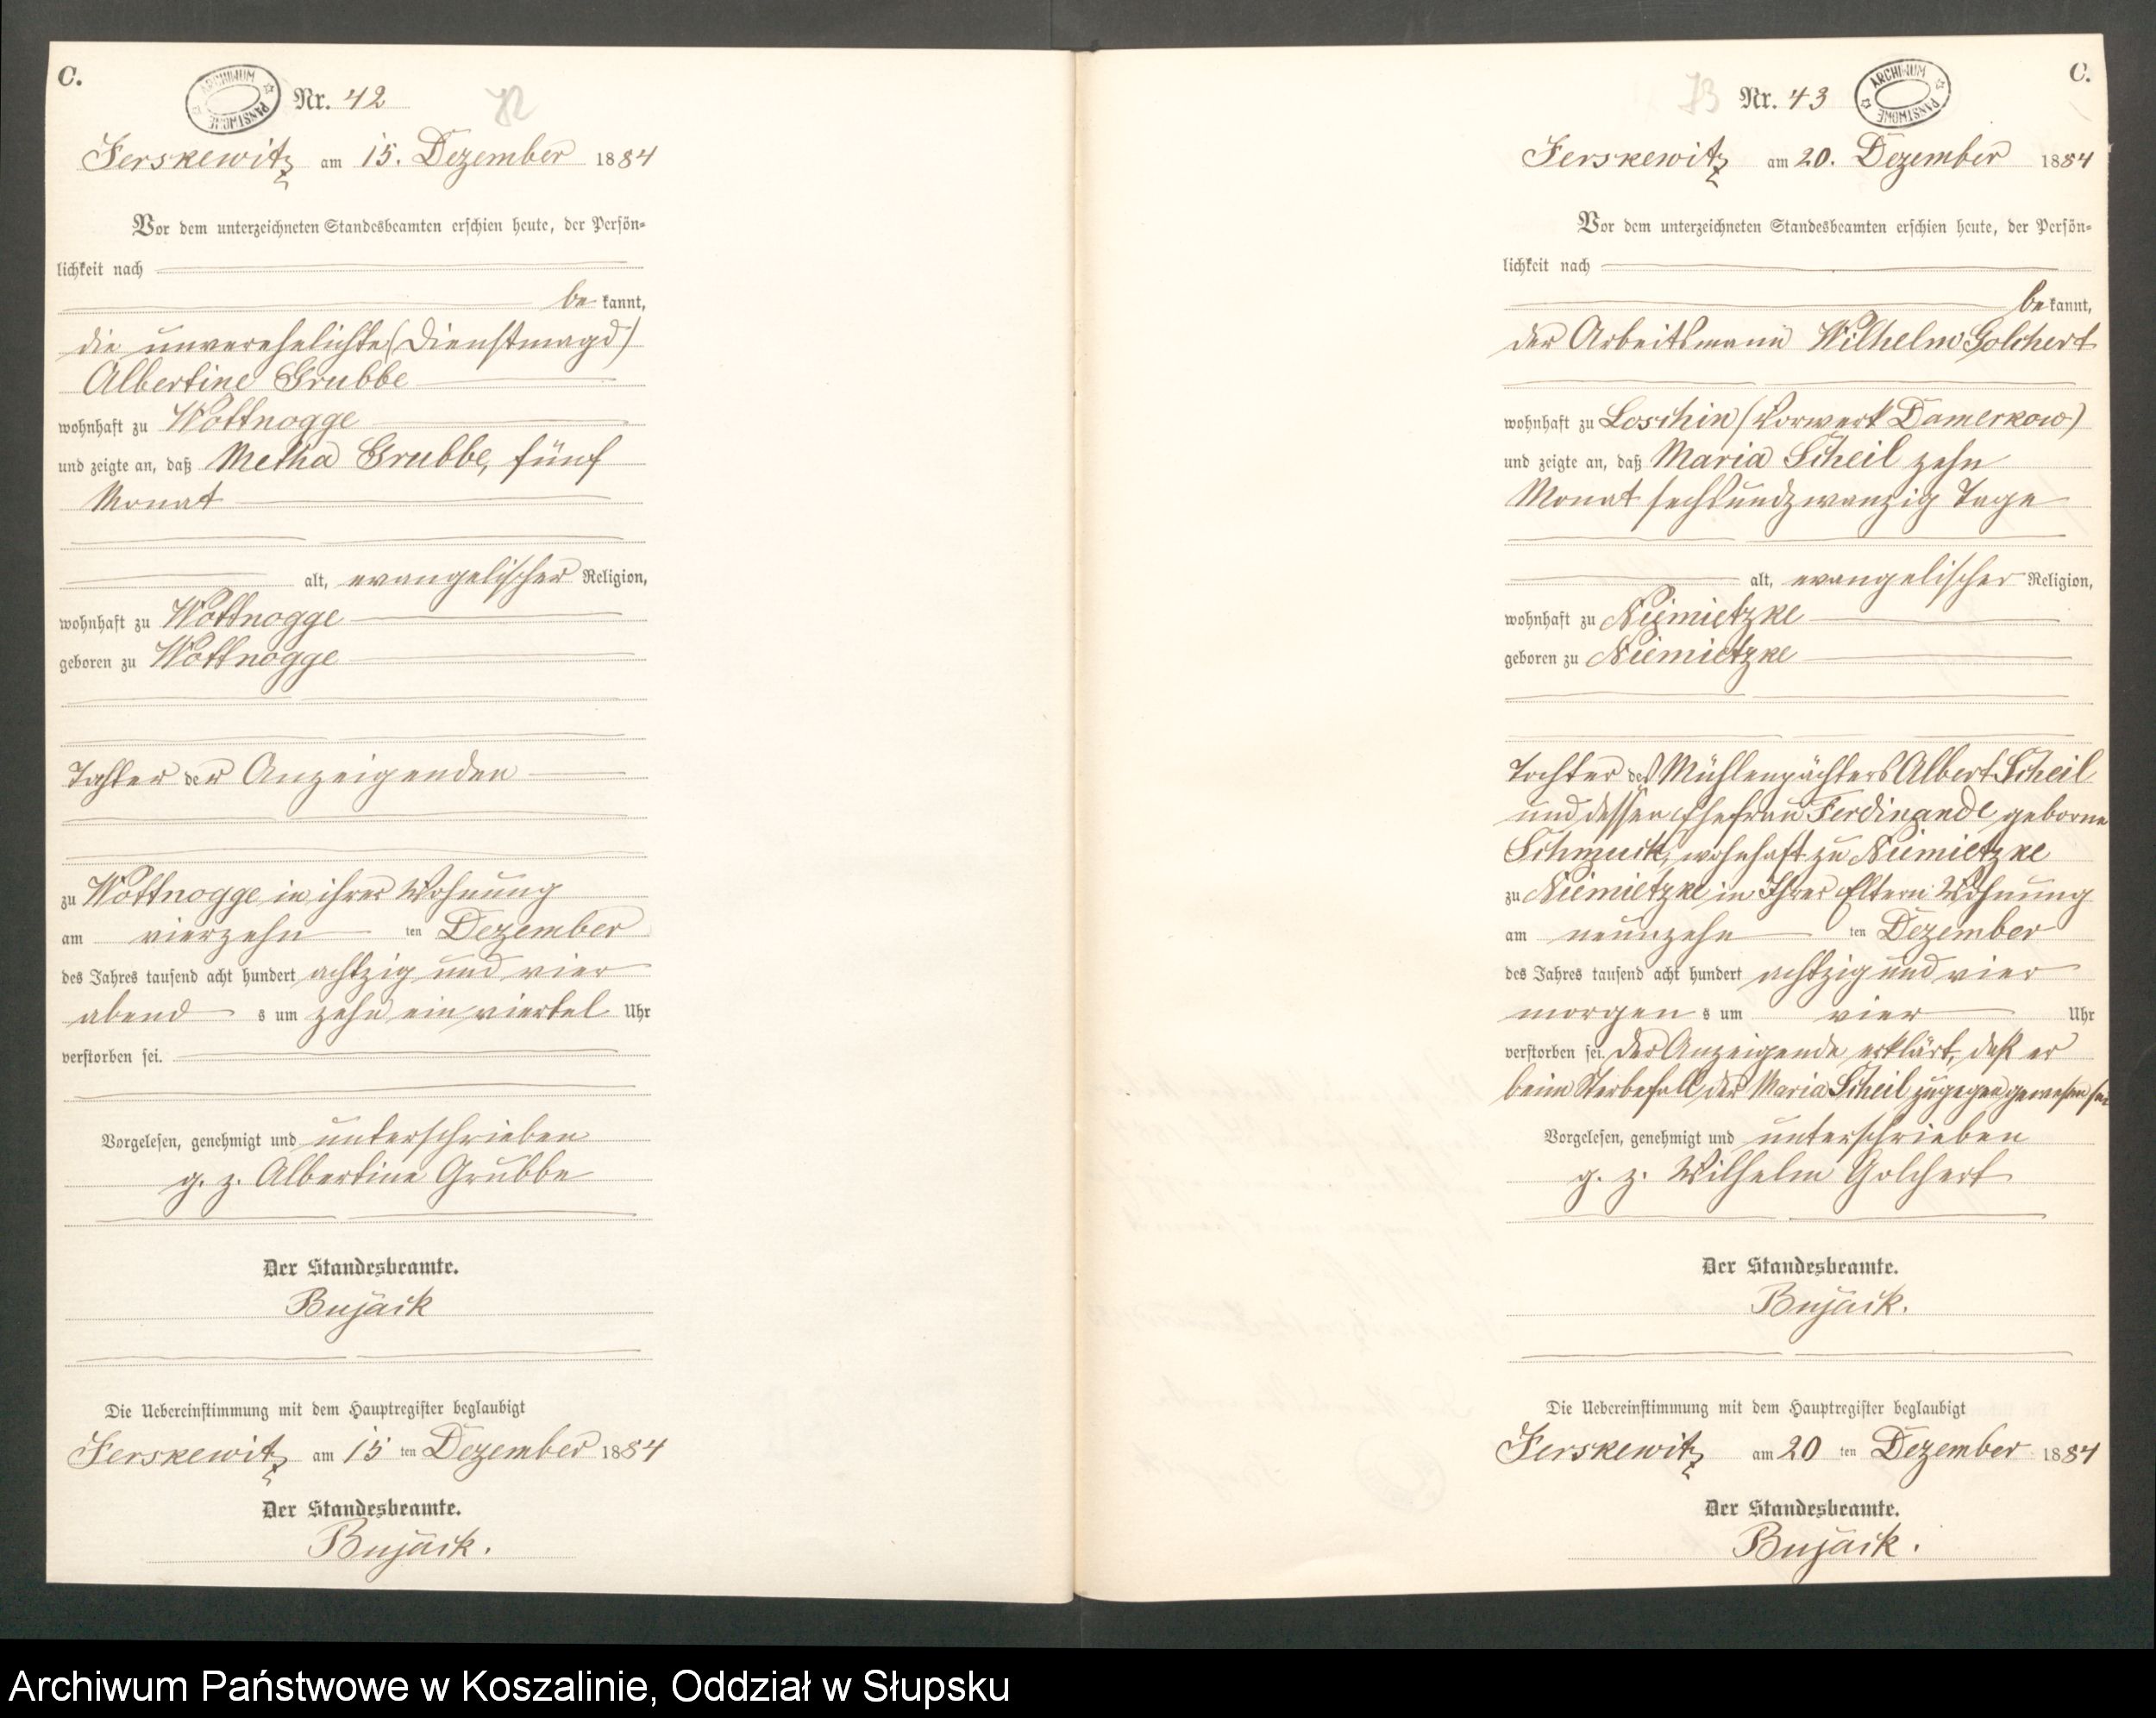 C.
ARCHIWUM PAŃSTWOWE
Nr. 42
72
Jerskewitz am 15. Dezember 1884
Vor dem unterzeichneten Standesbeamten erschien heute, der Persön-
lichkeit nach
be kannt,
die unverehelichte (Dienstmagd)
Albertine Grubbe
wohnhaft zu Wottnogge
und zeigte an, daß Metha Grubbe, fünf
Monat
alt, evangelischer Religion,
wohnhaft zu Wottnogge
geboren zu Wottnogge
Tochter der Anzeigenden
zu Wottnogge in ihrer Wohnung
am vierzehn ten Dezember
des Jahres tausend acht hundert achtzig und vier
abend s um zehn ein viertel Uhr
verstorben sei.
Vorgelesen, genehmigt und unterschrieben
g. z. Albertine Grubbe
Der Standesbeamte.
Bujack
Die Uebereinstimmung mit dem Hauptregister beglaubigt
Jerskewitz am 15 ten Dezember 1884
Der Standesbeamte.
Bujack.
C.
73
Nr. 43
ARCHIWUM PAŃSTWOWE
Jerskewitz am 20. Dezember 1884
Vor dem unterzeichneten Standesbeamten erschien heute, der Persön-
lichkeit nach
be kannt,
der Arbeitsmann Wilhelm Golchert
wohnhaft zu Loschin (Vorwerk Damerkow)
und zeigte an, daß Maria Scheil zehn
Monat sechsundzwanzig Tage
alt, evangelischer Religion,
wohnhaft zu Niemietzke
geboren zu Niemietzke
Tochter des Mühlenpächters Albert Scheil
und dessen Ehefrau Ferdinande geborne
Schmuck, wohnhaft zu Niemietzke
zu Niemietzke in Ihrer Eltern Wohnung
am neunzehn ten Dezember
des Jahres tausend acht hundert achtzig und vier
morgen s um vier Uhr
verstorben sei. Der Anzeigende erklärt, daß er
beim Sterbefall der Maria Scheil zugegen gewesen sei
Vorgelesen, genehmigt und unterschrieben
g. z. Wilhelm Golchert
Der Standesbeamte.
Bujack.
Die Uebereinstimmung mit dem Hauptregister beglaubigt
Jerskewitz am 20 ten Dezember 1884
Der Standesbeamte.
Bujack.
Archiwum Państwowe w Koszalinie, Oddział w Słupsku